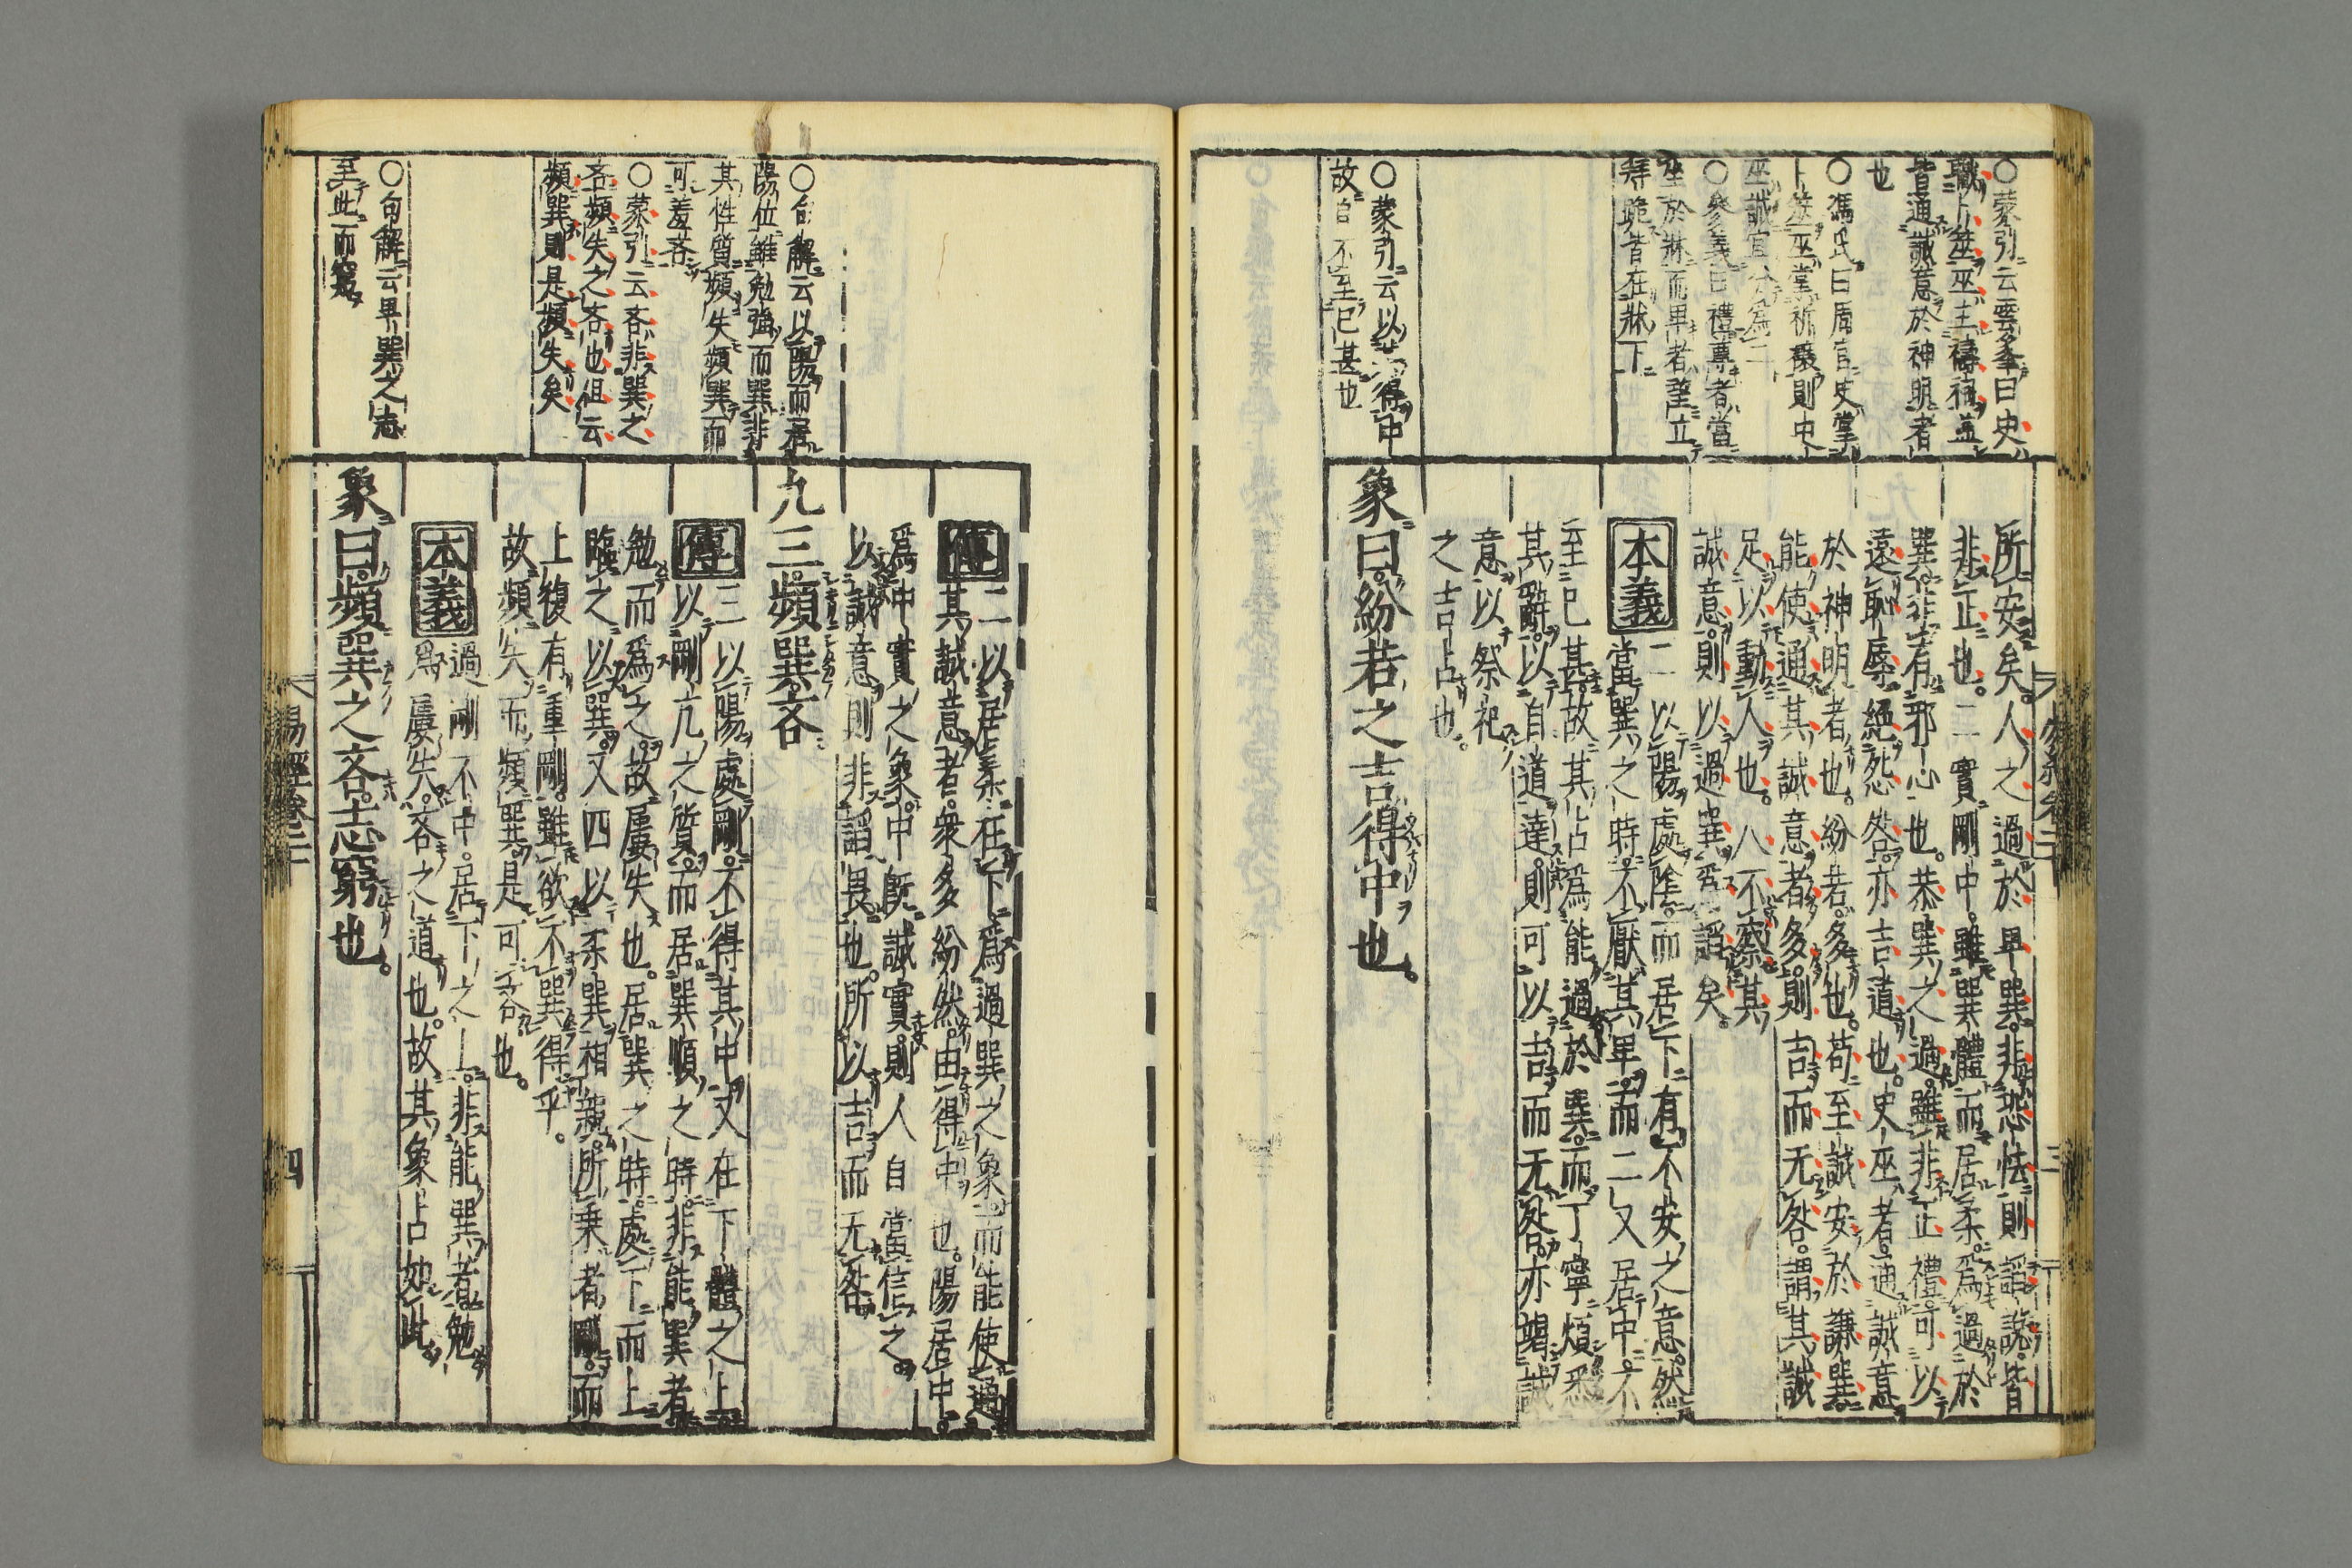 ○蒙引云雲峯曰史
職卜筮巫主禱祠並
皆通誠意於神明者
也
○馮氏曰周官史掌
卜筮巫掌祈禳則史
巫誠宜分爲二
○參義曰禮尊者當
坐於牀而卑者葢立
拜跪皆在牀下
○蒙引云以其得中
故自不至巳甚也
所安矣。人之過於卑巽。非恐怯則謟說。皆
非正也。二實剛中。雖巽體而居柔。爲過於
巽。非有邪心也。恭巽之過。雖非正禮。可以
遠恥辱絕怨咎。亦吉道也。史巫者。通誠意
於神明者也。紛若。多也。苟至誠安於謙巽。
能使通其誠意者多。則吉而无咎。謂其誠
足以動人也。人不察其
誠意。則以過巽爲謟矣。
本義二以陽處陰。而居下有不安之意。然
當巽之時。不厭其卑。而二又居中。不
至已甚。故其占爲能過於巽。而丁寧煩悉
其辭。以自道達。則可以吉而无咎。亦竭誠
意以祭祀
之吉占也。
象曰。紛若之吉。得中也。
傳二以居柔在下。爲過巽之象。而能使通
其誠意者。衆多紛然。由得中也。陽居中。
爲中實之象。中旣誠實。則人自當信之。
以誠意則非謟畏也。所以吉而无咎。
九三。頻巽。吝
傳三以陽處剛。不得其中。又在下體之上。
以剛亢之質。而居巽順之時。非能巽者。
勉而爲之。故屢失也。居巽之時。處下而上
臨之以巽。又四以柔巽相親。所乘者剛。而
上復有重剛。雖欲不巽得乎。
故頻失而頻巽。是可吝也。
本義過剛不中。居下之上。非能巽者。勉
爲屢失。吝之道也。故其象占如此。
象曰。頻巽之吝。志窮也。
○句解云以陽而居
陽位雖勉強而巽非
其性質頻失頻巽而
可羞吝
○蒙引云吝非巽之
吝頻失之吝也但云
頻巽則是頻失矣
○句解云卑巽之志
至此而窮
易經卷二十
四